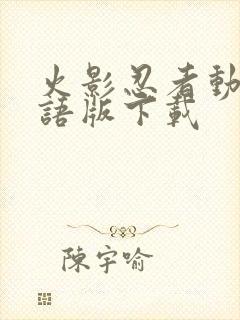 火影忍者動
語版下載
陳宇喻